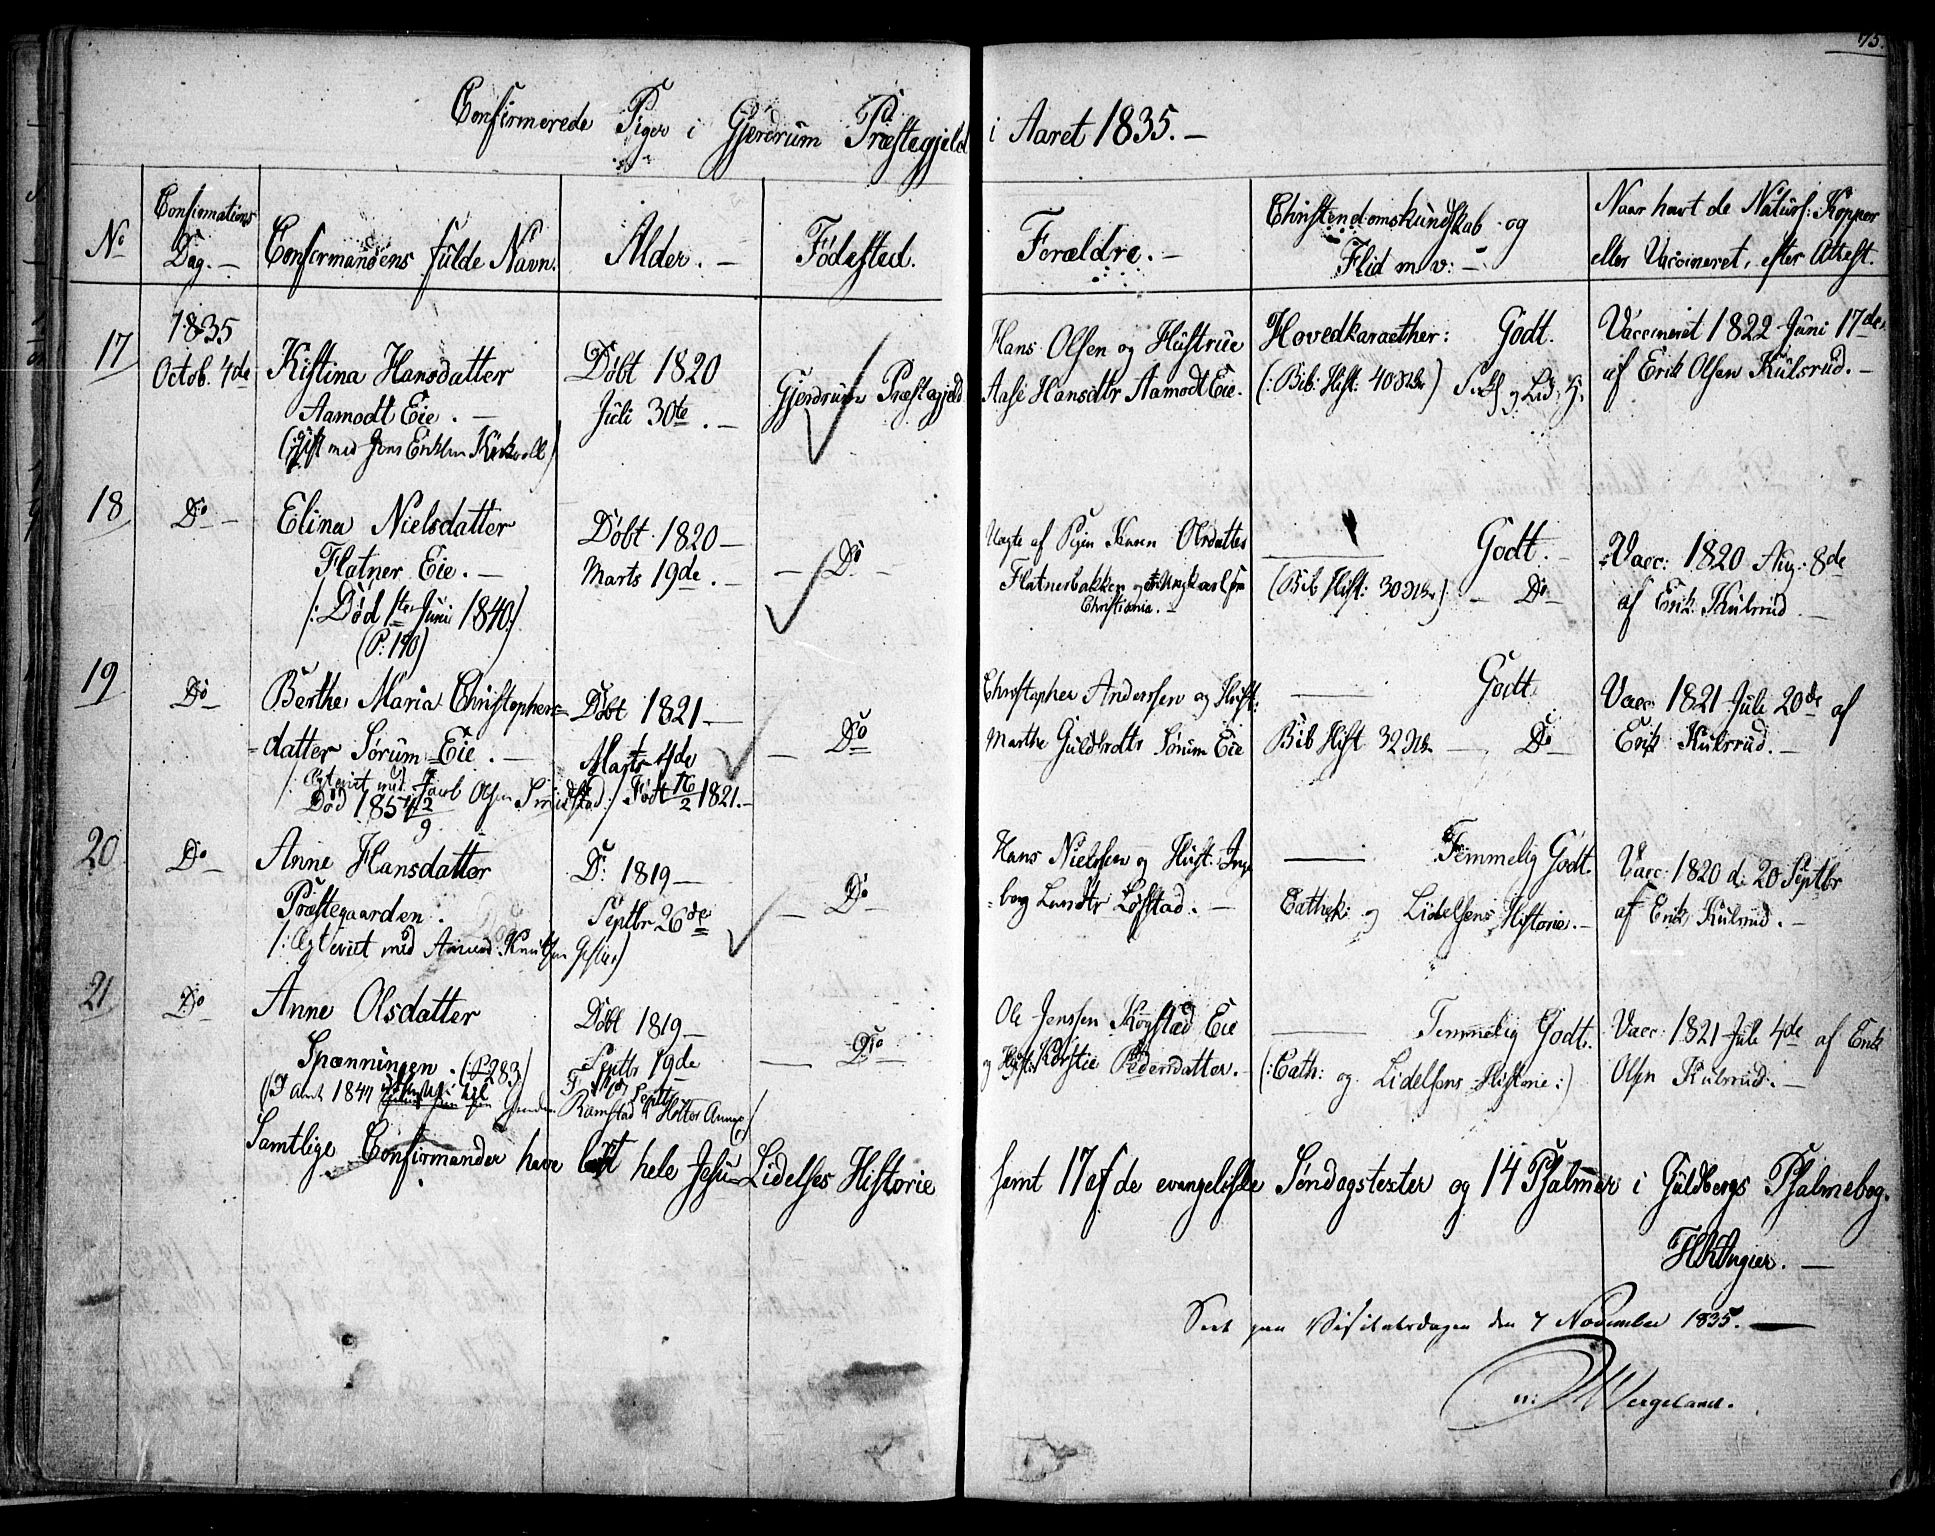 75.
Confirmerede Piger i Gjerdrum Præstegjeld i Aaret 1835. —
No
Confirmations Dag. —
Confirmandens fulde Navn.
Alder. —
Fødested.
Forældre. —
Christendomskundskab og Flid m. v: —
Naar havt de Naturl: Kopper eller Vaccineret, efter Attest.
17
1835
Octob. 4de
Kistina Hansdatter
Aamodt Eie. —
(gift med Jens Eriksen Kirkvold)
Døbt 1820
Juli 30te. —
Gjerdrums Præstegjeld
Hans Olsen og Hustrue
Aase Hansdtr Aamodt Eie.
Hovedkaracther: Godt.
(: Bib: Hist:
Vaccineret 1822 Juni 17de
af Erik Olsen Kulsrud. —
18
Do —
Elina Nielsdatter
Flatner Eie. —
/: Død 1ste Juni 1840 :/
(P: 190)
Døbt 1820 —
Marts 19de. —
— Do —
Uægte af Pigen Karen Olsdatter
Flatnerbakken og Ungkarl fra
Christiania. —
Godt. —
(Bib Hist: — Do —
Vacc: 1820 Aug: 8de
af Erik Kulsrud —
19
Do —
Berthe Maria Christophers=
datter Sørum=Eie. —
/: Ægteviet med Jacob Olsen Smidstad :/ Født 16/2 1821. —
Død 1857 12/9
Døbt 1821 —
Marts 4de
— Do
Christopher Anderssen og Hust:
Marthe Guldbrdtr Sørum Eie
— Godt
Bib Hist — Do —
Vacc: 1821 Jule 20de af
Erik Kulsrud. —
20
Do —
Anne Hansdatter
Præstegaarden.
/: Ægteviet med Amund Knutsen
D: 1819 —
Septbr 26de
— Do —
Hans Nielssen og Hust: Inge
=borg Løfstad. —
— Temmelig Godt.
Cathek: og Lidelsens Historie. —
Vacc: 1820 d: 20 Septbr
af Erik Kulsrud. —
21
Do —
Anne Olsdatter
Spænningen. (P 283)
Døbt 1819 —
Septbr 19de
— Do —
Ole Jenssen Kogstad Eie
og Hust: Kirstie Pedersdatter. —
— Temmelig Godt.
(: Cath: og Lidelsens Historie :)
Vacc: 1821 Jule 4de af Erik
Olsen Kulsrud. —
Samtlige Confirmander have læst hele Jesu Lidelses Historie samt 17 af de evangeliske Søndagstexter og 14 Psalmer i Guldbergs Psalmebog.
HKAngier. —
Seet paa Visitatsdagen den 7 November 1835. —
n: Wergeland.